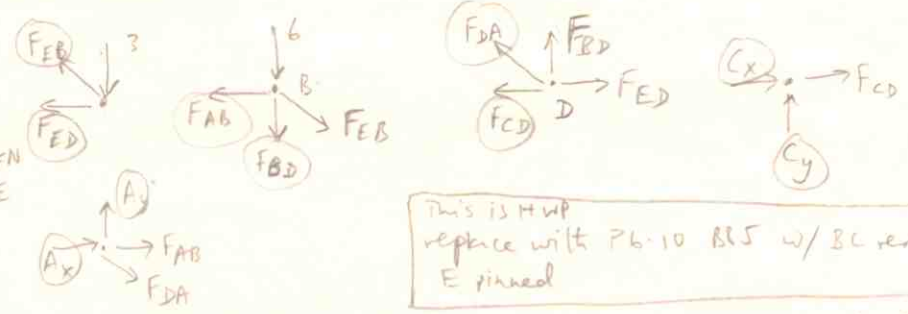 F_EB 3
F_ED
6
B
F_AB F_EB
F_BD
F_DA F_BD
F_CD D F_ED
Cx F_CD
Cy
EN
E
Ay
Ax F_AB
F_DA
This is HWP
replace with P6.10 BR5 w/ BC
E pinned